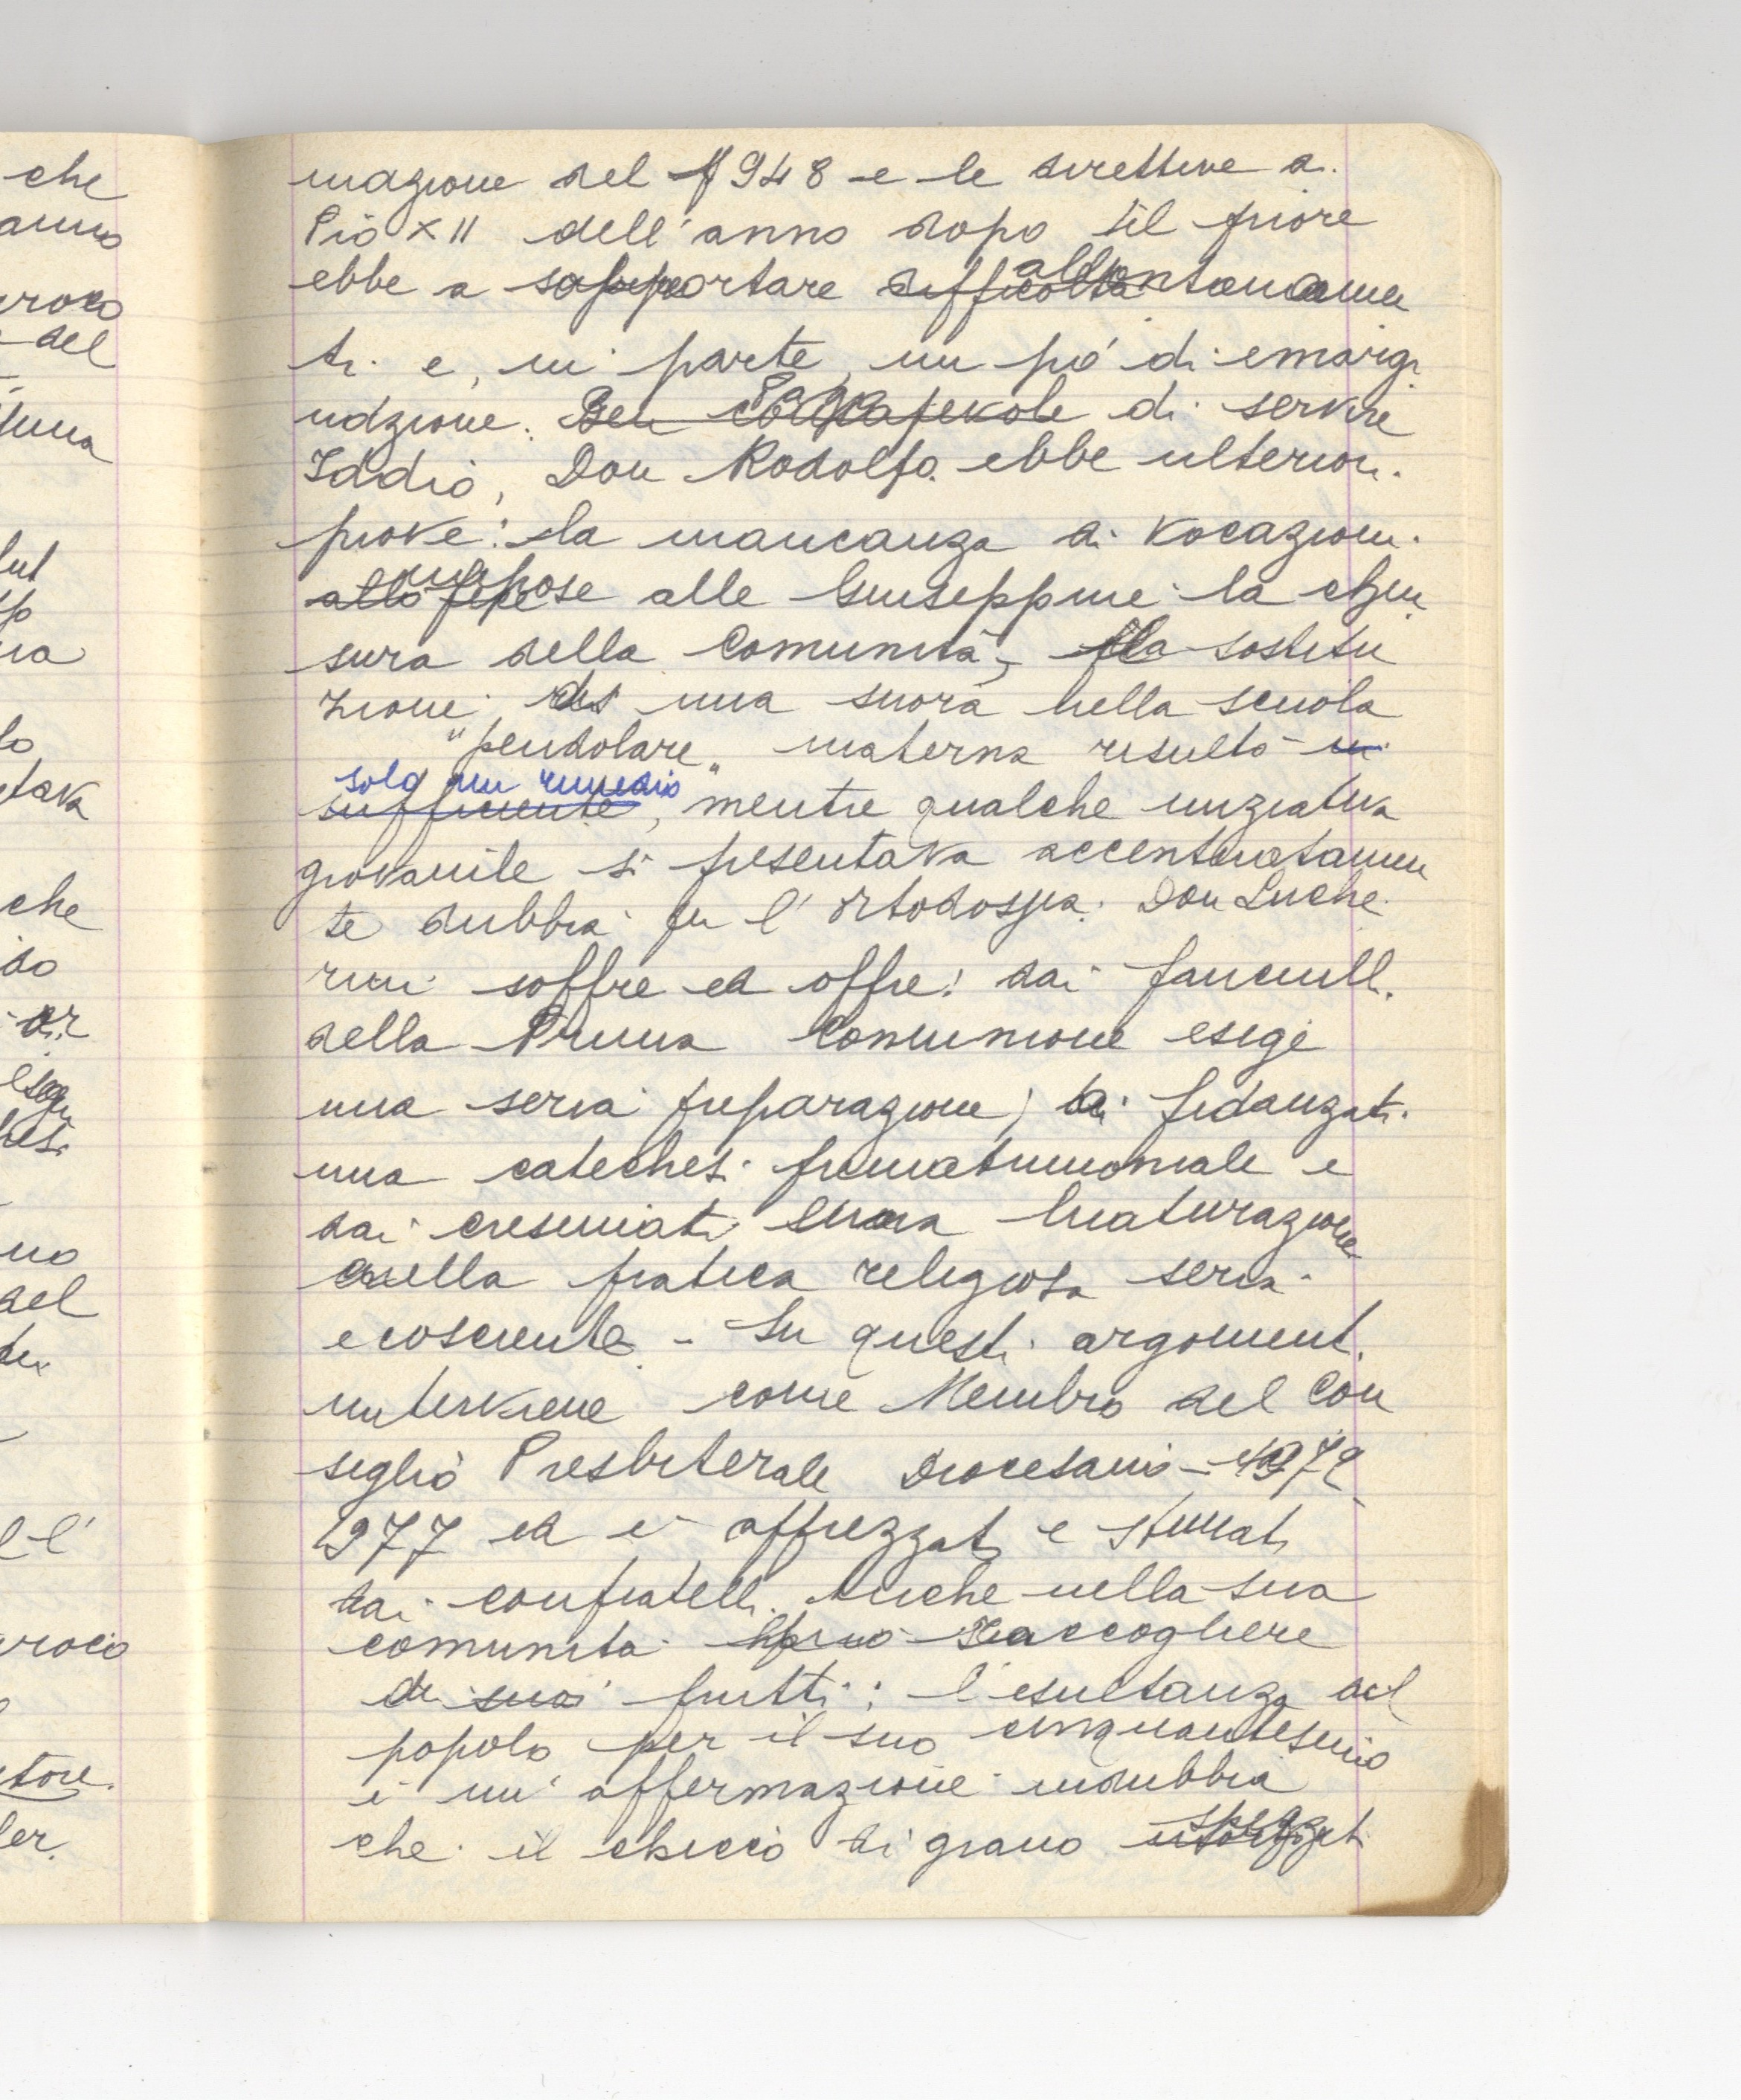 mazione del 1948 e le direttive di
Pio XII dell'anno dopo il priore
ebbe a sopportare allontanamen
ti e, in parte, un pò di emargi
nazione. di servire
Iddio, Don Rodolfo ebbe ulteriori
prove: la mancanza di vocazioni
impose alle Giuseppine la chiu
sura della Comunità, la sostitu
zione di una suora nella scuola
"pendolare" materna risultò
solo un rimedio, mentre qualche iniziativa
giovanile si presentava accentuatamen
te dubbia per l'ortodossia. Don Luche
rini soffre ed offre: dai fanciulli
della Prima Comunione esige
una seria preparazione, dai fidanzati
una catechesi prematrimoniale e
dai cresimati una maturazione
nella pratica religiosa seria
e cosciente - Su questi argomenti
interviene come Membro del Con
siglio Presbiterale Diocesano - 1972
1977 ed è apprezzato e stimato
dai confratelli. Anche nella sua
comunità può raccogliere
di suoi frutti: l'esultanza del
popolo per il suo cinquantesimo
è un'affermazione indubbia
che il chicco di grano
che
anno
del
che
del
l'